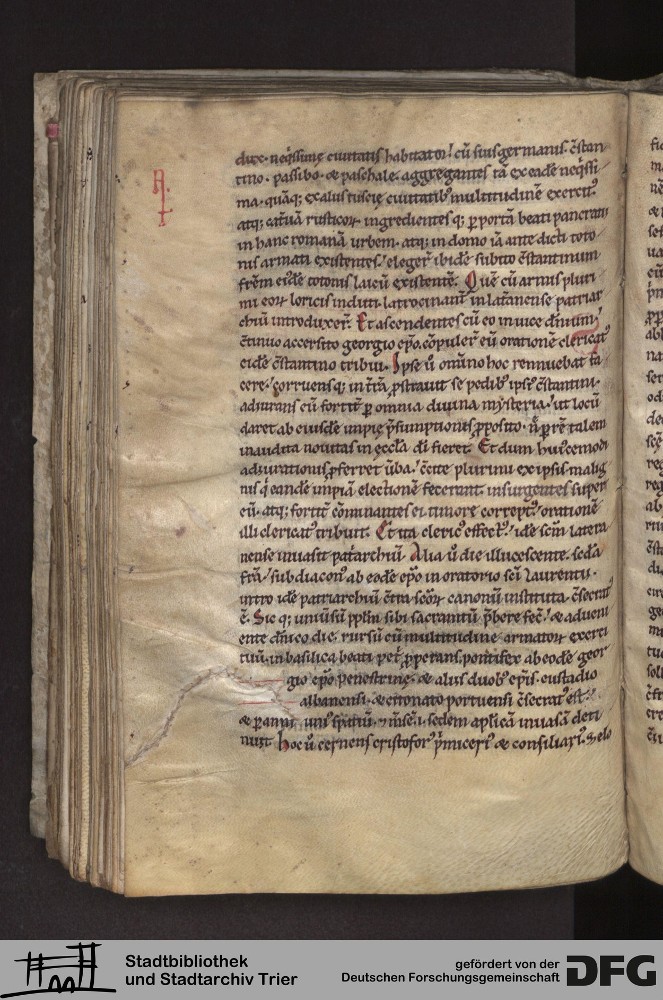 dux. neq̃ssimę ciuitatis habitator! cũ suis germanis. c̃stan
tino. passibo. & paschale. aggregantes tã ex eadẽ neq̃ssi
ma. quãq; ex aliis tuscię ciuitatib; multitudinẽ exercit᷒
atq; cat̃uã rusticoꝝ. ingredientes q; ꝑ portã beati pancratii
in hanc romanã urbem. atq; in domo iã ante dicti toto
nis armati existentes! eleger̃ ibidẽ subito c̃stantinum
fr̃em eidẽ totonis laicũ existentẽ. Quẽ cũ armis pluri
mi eoꝝ loricis induti. latrocinant̃ in lat̃anense patriar
chiũ introduxer̃. Et ascendentes cũ eo in uice dñiũm!
c̃tinuo accersito georgio ep̃o. cõpuler̃ eũ orationẽ clericat᷒
eidẽ c̃stantino tribui. Ipse ũ omĩno hoc rennuebat fa
cere! corruens q; in t̃rã ꝓstrauit se pedib; ipsi᷒ c̃stantini.
adiurans eũ fortit̃ ꝑ omnia diuina mẏsteria! ut locũ
daret ab eiusdẽ impię p̃sumptionis ꝓposito. ñ ꝑ rẽ talem
inaudita nouitas in ęccl̃a dĩ fieret. Et dum hui᷒cemodi
adiurationis ꝓferret ũba! c̃tite plurimi ex ipsis malig
nis q̃ eandẽ impiã electionẽ fecerant. insurgentes super
eũ. atq; fortit̃ cõminantes ei. timore corrept᷒! orationẽ
illi clericat᷒ tribuit. Et ita cleric᷒ effect᷒! idẽ sc̃m latera
nense inuasit pat̃archiũ. Alia ũ die illucescente. sec̃da
fr̃ia! subdiacon᷒ ab eodẽ ep̃o in oratorio sc̃i laurentii.
intro idẽ patriarchiũ c̃tra sc̃oꝝ canonũ instituta. c̃secrat᷒
ẽ. Sic q; uniũsũ ppl̃m sibi sacramtũ p̃bere fec̃! & adueni
ente dñico die. rursũ cũ multitudine armatoꝝ exerci
tuũ. in basilica beati pet̃ ꝓperans. pontifex ab eodẽ geor
gio ep̃o penestrinę. & aliis duob; ep̃is. eustadio
albanensi. & citonato portuensi c̃secrat᷒ est.
& ꝑ anni uni᷒ spatiũ. & mẽsẽ .i. sedem ap̃licã inuasã deti
nuit. hoc ũ cernens cristofor᷒ p̃miceri᷒ & consiliari᷒. zelo
Stadtbibliothek
und Stadtarchiv Trier
gefördert von der
Deutschen Forschungsgemeinschaft
DFG